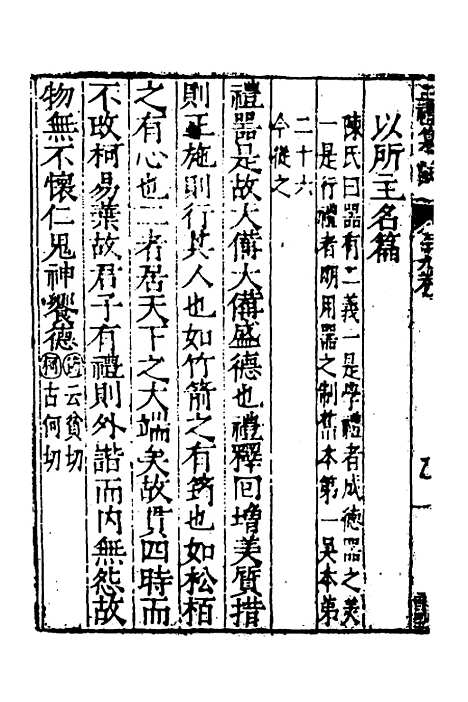 以所主名篇
陳氏曰器有二義一是學禮者成德器之美
一是行禮者明用器之制舊本第一吳本第
二十六
今從之
禮器是故大備大備盛德也禮釋回增美質措
則正施則行其人也如竹箭之有筠也如松栢
之有心也二者居天下之大端矣故貫四時而
不改柯易葉故君子有禮則外諧而內無怨故
物無不懷仁鬼神饗德
云貧切
柯古何切